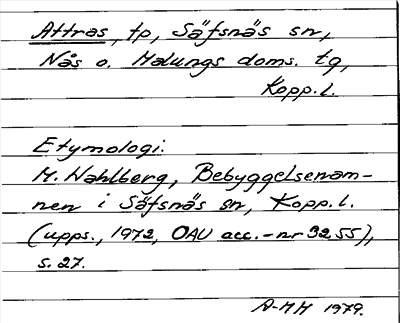 Attras, tp, Säfsnäs sn,
Nås o. Malungs doms. tg,
Kopp.l.
Etymologi:
M. Wahlberg, Bebyggelsenam-
nen i Säfsnäs sn, Kopp.l.
(upps., 1972, OAU acc.-nr 3255),
s. 27.
A-MH 1979.